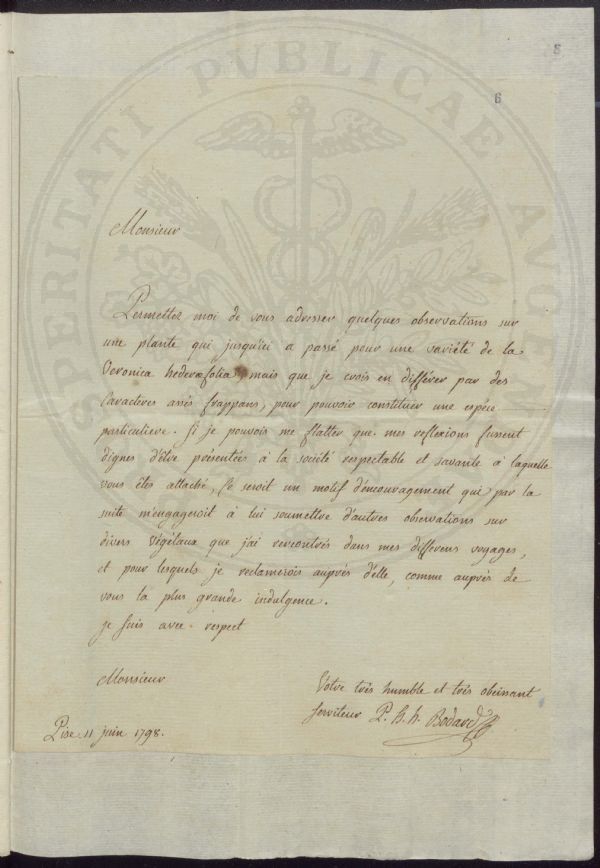 PROSPERITATI PVBLICAE AVGENDAE
5
6
Monsieur
Permettez moi de vous adresser quelques observations sur
une plante qui jusqu'ici a passé pour une variété de la
Veronica hederæfolia, mais que je crois en différer par des
caractères assés frappans, pour pouvoir constituer une espéce
particuliere. Si je pouvois me flatter que mes reflexions fussent
dignes d'être présentées à la société respectable et savante à laquelle
vous êtes attaché, Ce seroit un motif d'encouragement qui par la
suite m'engageroit à lui soumettre d'autres observations sur
divers végétaux que j'ai rencontrés dans mes différens voyages,
et pour lesquels je reclamerois auprés d'elle, comme auprés de
vous la plus grande indulgence.
je suis avec respect
Monsieur
Votre trés humble et trés obeissant
serviteur P. h. h. Bodard
Pise 11 juin 1798.